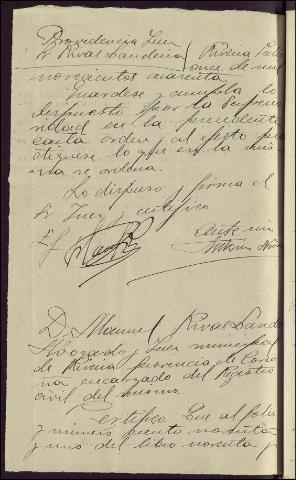 Providencia Juez
Sr Rivas Landeira Riveira
once de mil
novecientos cuarenta
Guardese y cumpla lo
dispuesto por la Superio
ridad en la precedente
carta orden y al efecto
lo que en la mis
ma se ordena.
Lo dispuso y firma el
Sr Juez y certifico
Ante mi
D. Manuel Rivas Land
Abogado y Juez municipal
de Riveira provincia de Coru
ña encargado del Registro
civil del mismo.
Certifico Que al folio
y número ciento
y uno del libro noventa y